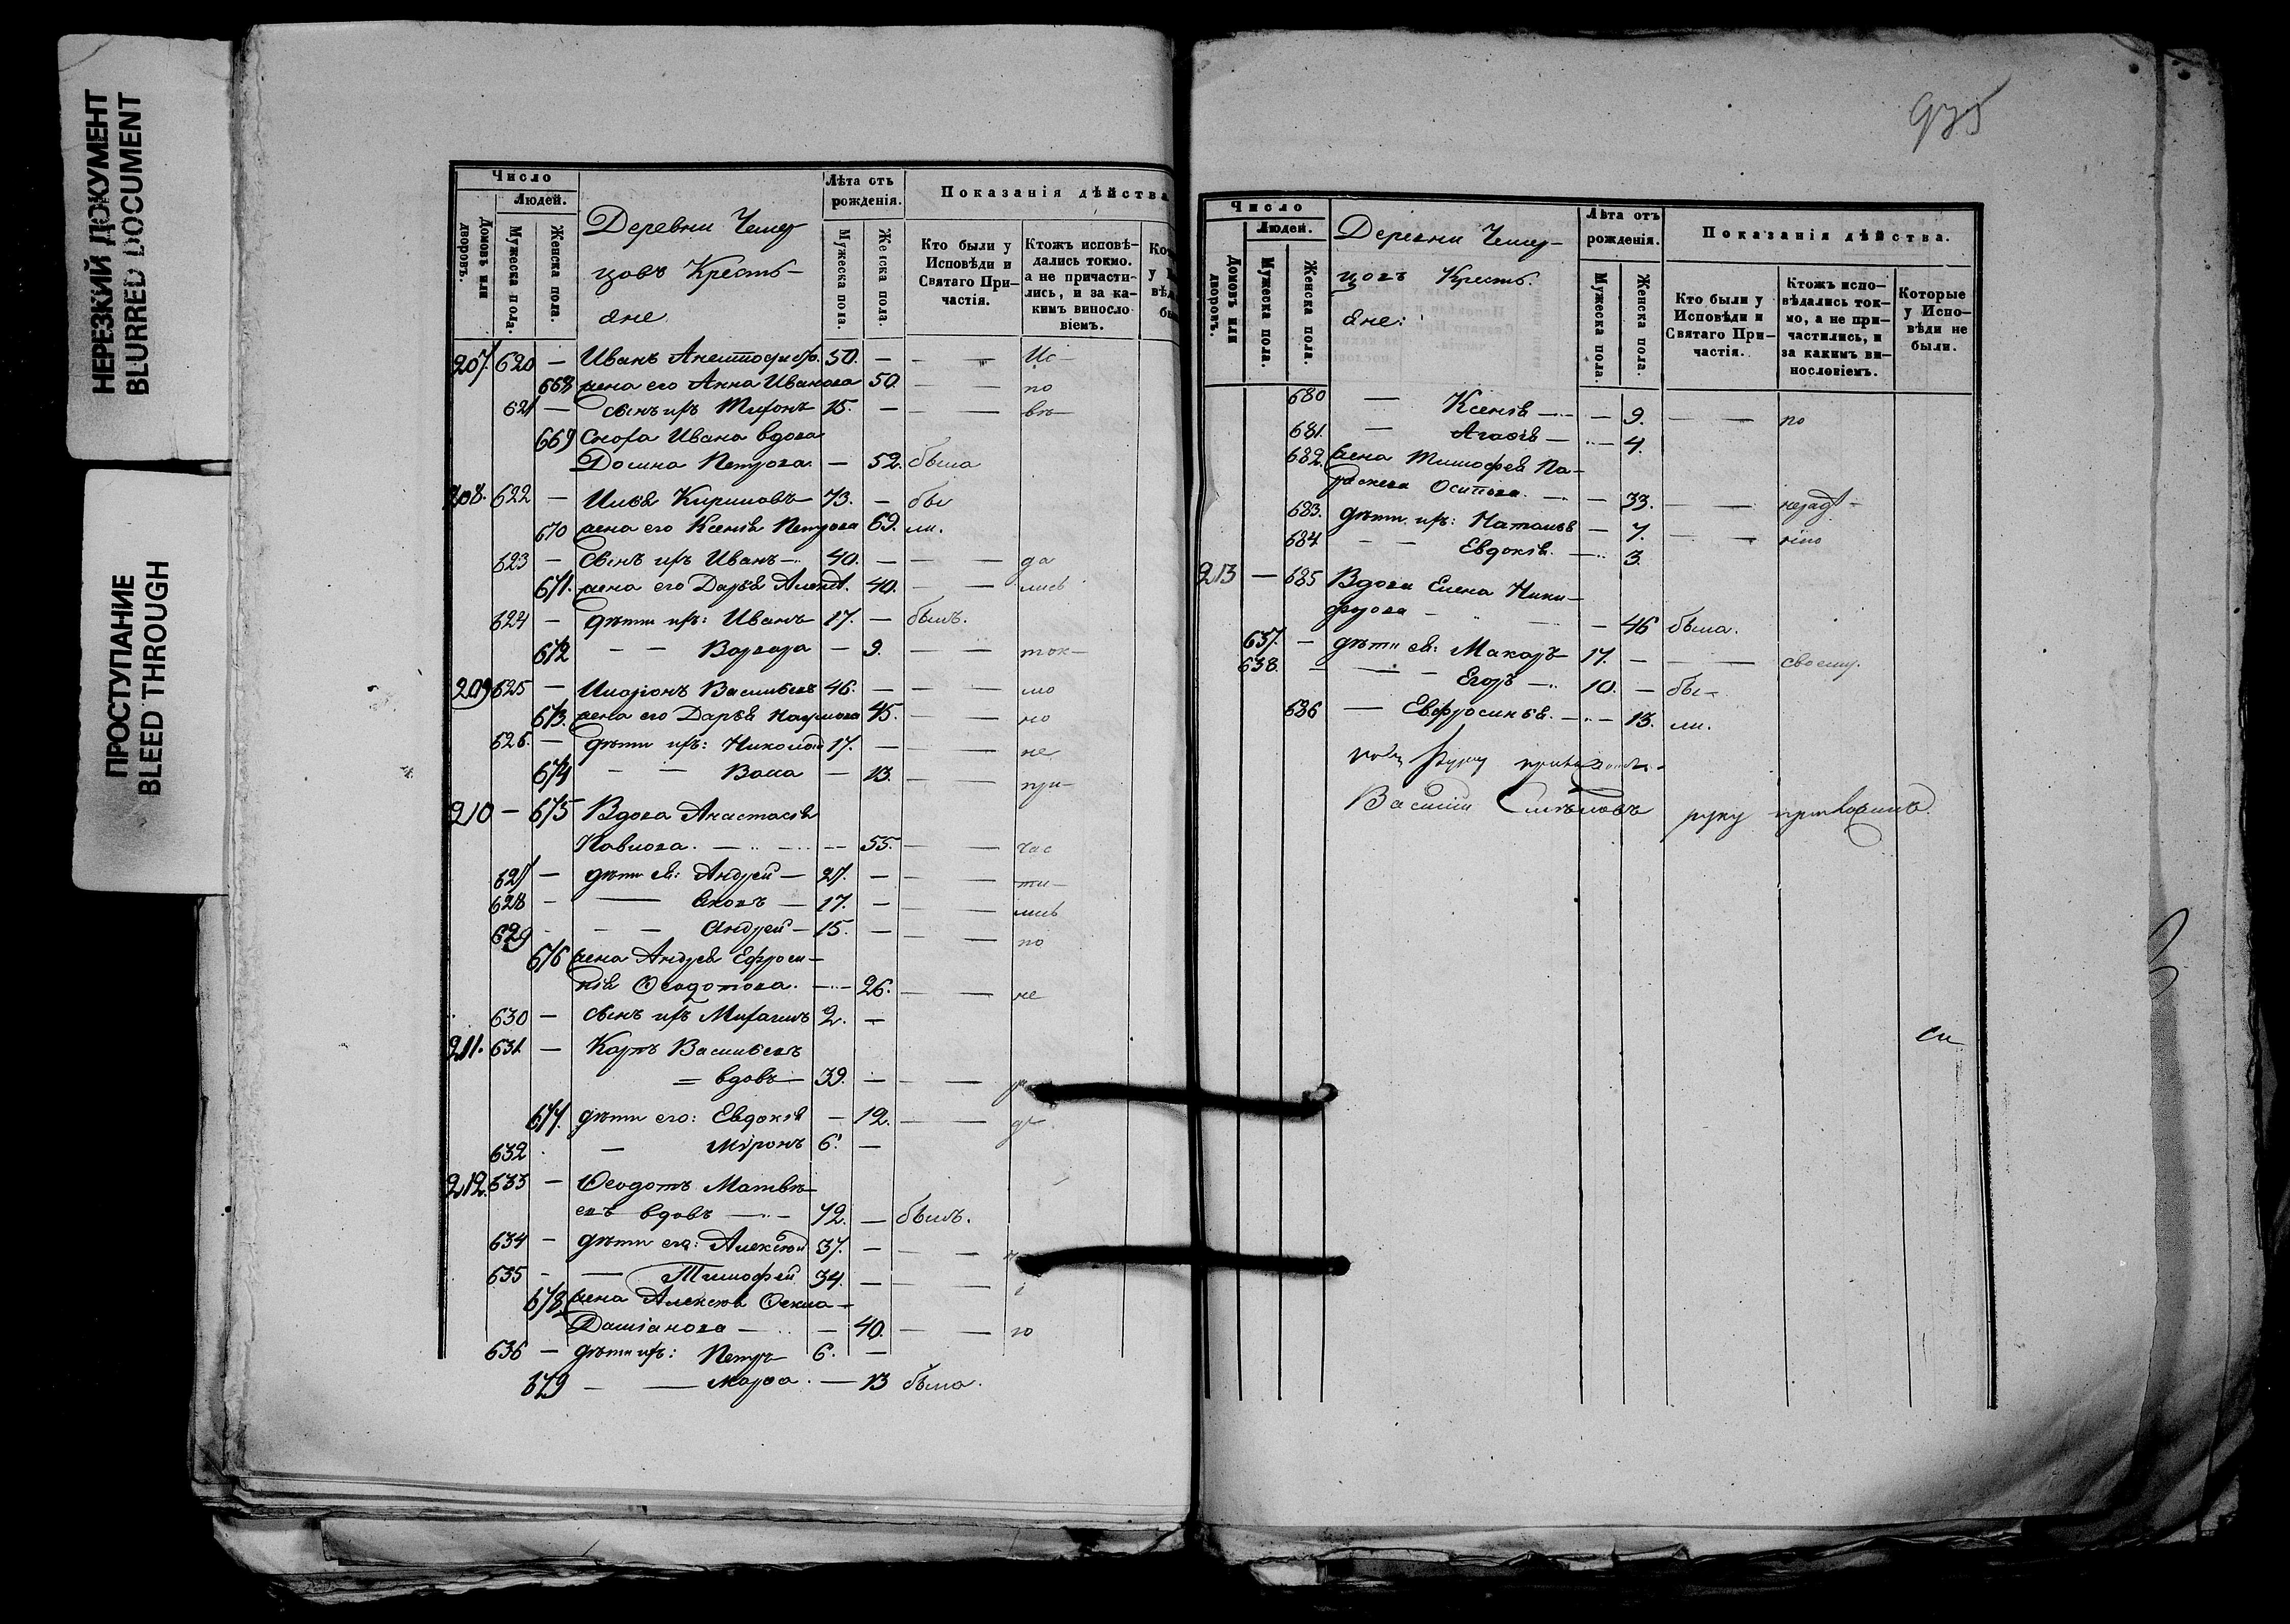 НЕРЕЗКИЙ ДОКУМЕНТ
BLURRED DOCUMENT
ПРОСТУПАНИЕ
BLEED THROUGH
Число
Людей.
Домовъ или дворовъ.
Мужеска пола.
Женска пола.
Деревни Чемер
цовъ Кресть-
яне
Лѣта отъ рожденія.
Мужеска пола.
Женска пола.
Показанія дѣйства
Кто были у Исповѣди и Святаго При-частія.
Ктожъ исповѣ-дались токмо. а не причасти-лись, и за ка-кимъ винословіемъ.
207. 620 — Иванъ 50. — — Ис-
668 жена его Анна Иванова 50. — — по
621 — сынъ ихъ Тифонъ 15. — — — вѣ-
669 Сноха Ивана вдова
Домна Петрова. — 52. была
208. 622 — Илья Кириловъ 73. — бы
670 жена его Ксенія Петрова 69. ли.
623 — сынъ ихъ Иванъ — 40. — — — да
671. жена его Дарья 40. — — лись
624 — дѣти ихъ: Иванъ 17. — былъ.
672 — — Варвара — 9. — — ток-
209 625 — Иларіонъ Васильевъ 46. — — — мо
673. жена его Дарья Наумова 45. — — но
626. — дѣти ихъ: Николай 17. — — — не
674 — — Васса — 13. — — при-
210 — 675 Вдова Анастасія
Павлова. — 55. — — час
627 — дѣти ея: Андрей — 27. — — — ти-
628 — Яковъ — 17. — — — лись
629 — — Андрей — 15. — — — по
676 жена Андрея Ефроси-
нія Ѳеодотова. — 26. — — не
630 — сынъ ихъ 2. —
211. 631 — Карпъ Васильевъ
= вдовъ — 39. — — —
677. дѣти его: Евдокія — 12. — —
632 — Мѵронъ 6. —
212. 633 — Ѳеодотъ Матвѣ-
евъ вдовъ — 72. — былъ.
634 — дѣти его: Алексѣй 37. — — —
635 — Тимофей 34. — — —
678. жена Алексѣя Ѳекла
Даміанова — 40. — — го
636 — дѣти ихъ: Петръ 6. —
679 — — Марѳа. — 13 была.
935
Число
Людей.
Домовъ или дворовъ.
Мужеска пола.
Женска пола.
Деревни Чемер-
цовъ Кресть.
яне:
Лѣта отъ рожденія.
Мужеска пола.
Женска пола.
Показанія дѣйства.
Кто были у Исповѣди и Святаго При-частія.
Ктожъ испо-вѣдались ток-мо, а не при-частились, и за какимъ ви-нословіемъ.
Которые у Испо-вѣди не были.
680 — Ксенія — — 9. — — по
681. — Агаѳія — — 4.
682. жена Тимофея Па-
раскева Осипова. — — 33. — — нерад
683. дѣти ихъ: Наталья — 7. — — нію
684 — — Евдокія. — 3.
213 — 685 Вдова Елена Ники-
форова — — 46 была.
637. — дѣти ея: Макаръ 17. — — — своему.
638. — — Егоръ — 10. — бы-
686 — Евфросинья. — — 13. ли.
руку
Василій руку приложилъ.